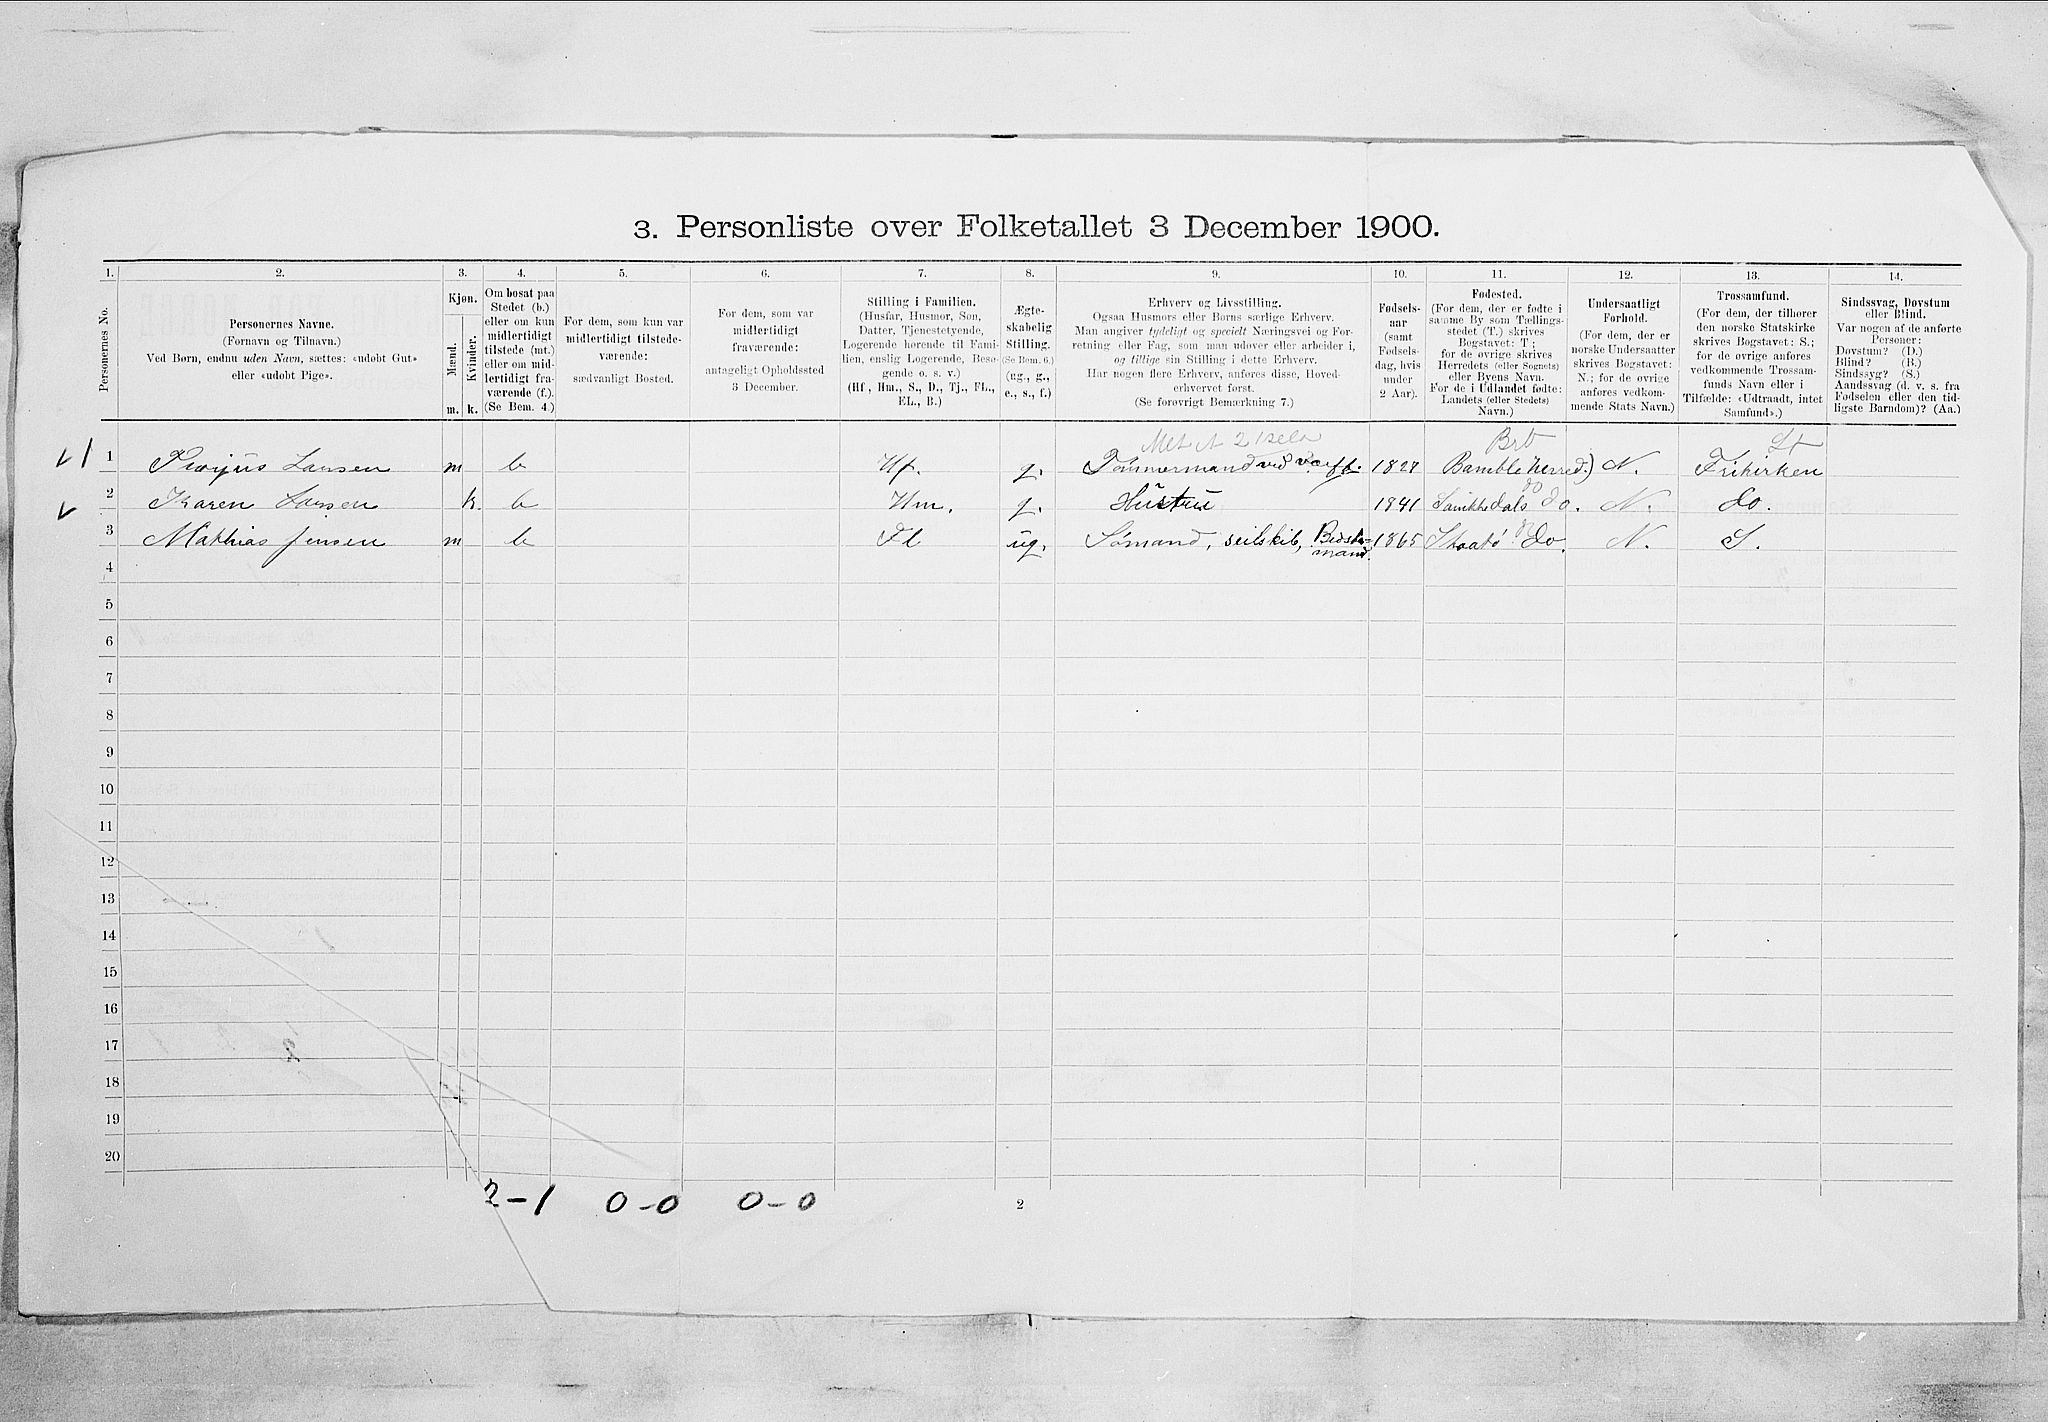 3. Personliste over Folketallet 3 December 1900.
1. 2. 3. 4. 5. 6. 7. 8. 9. 10. 11. 12. 13. 14.
Personernes No.
Personernes Navne.
(Fornavn og Tilnavn.)
Ved Børn, endnu uden Navn, sættes: «udøbt Gut»
eller «udøbt Pige».
Kjøn.
Mænd.
Kvinder.
m. k.
Om bosat paa
Stedet (b.)
eller om kun
midlertidigt
tilstede (mt.)
eller om mid-
lertidigt fra-
værende (f.).
(Se Bem. 4.)
For dem, som kun var
midlertidigt tilstede-
værende:
sædvanligt Bosted.
For dem, som var
midlertidigt
fraværende:
antageligt Opholdssted
3 December.
Stilling i Familien.
(Husfar, Husmor, Søn,
Datter, Tjenestetyende,
Logerende hørende til Fami-
lien, enslig Logerende, Besø-
gende o. s. v.)
(Hf, Hm., S., D., Tj., FL.,
EL., B.)
Ægte-
skabelig
Stilling.
(Se Bem. 6.)
(ug., g.,
e., s., f.)
Erhverv og Livsstilling.
Ogsaa Husmors eller Børns særlige Erhverv.
Man angiver tydeligt og specielt Næringsvei og For-
retning eller Fag, som man udøver eller arbeider i,
og tillige sin Stilling i dette Erhverv.
Har nogen flere Erhverv, anføres disse, Hoved-
erhvervet først.
(Se forøvrigt Bemærkning 7.)
Fødsels-
aar
(samt
Fødsels-
dag, hvis
under
2 Aar).
Fødested.
(For dem, der er fødte i
samme By som Tællings-
stedet (T.) skrives
Bogstavet: T;
for de øvrige skrives
Herredets (eller Sognets)
eller Byens Navn.
For de i Udlandet fødte:
Landets (eller Stedets)
Navn.)
Undersaatligt
Forhold.
(For dem, der er
norske Undersaatter
skrives Bogstavet:
N.; for de øvrige
anføres vedkom-
mende Stats Navn.)
Trossamfund.
(For dem, der tilhører
den norske Statskirke
skrives Bogstavet: S.;
for de øvrige anføres
vedkommende Trossam-
funds Navn eller i
Tilfælde: «Udtraadt, intet
Samfund».)
Sindssvag, Døvstum
eller Blind.
Var nogen af de anførte
Personer:
Døvstum? (D.)
Blind? (B.)
Sindssyg? (S.)
Aandssvag (d. v. s. fra
Fødselen eller den tid-
ligste Barndom)? (Aa.)
1 Larsen m b Hf. g. Tømmermand ved værft. Bamble herred) N. Frikirken
2 Karen Larsen k. b Hm. g. Hustru 1841 Sannikedals do. N. do.
3 Mathias Jensen m b Fl ug. Sømand, seilskib, Bedste- 1865 Skaatø do. N. S.
mand.
4
5
6
7
8
9
10
11
12
13
14
15
16
17
18
19
20
2-1 0-0 0-0
2